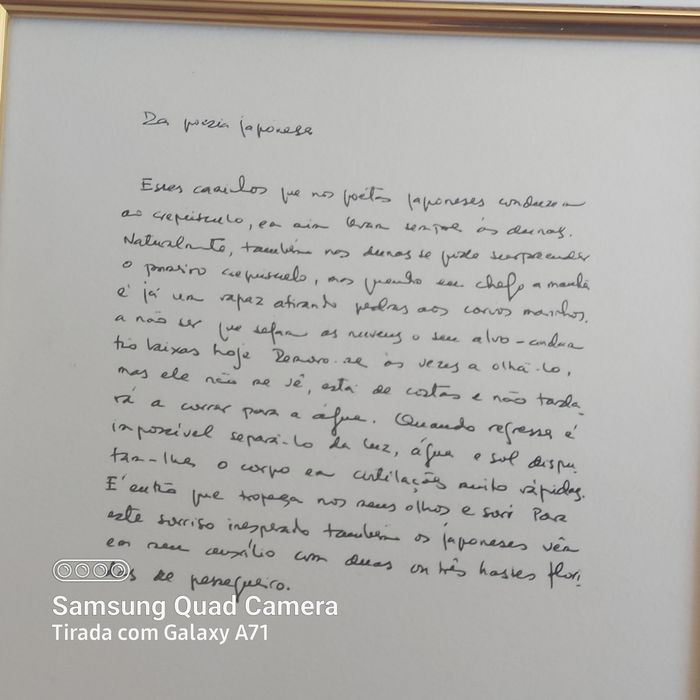 Da poesia japonesa
Esses caminhos que nos poetas japoneses conduzem
ao crepúsculo, em mim levam sempre às dunas.
Naturalmente, também nas dunas se pode surpreender
o primeiro crepúsculo, mas quando eu chego a manhã
é já um rapaz atirando pedras aos corvos marinhos,
a não ser que sejam as nuvens o seu alvo – andam
tão baixas hoje. Demoro-me às vezes a olhá-lo,
mas ele não me vê, está de costas e não tarda
rá a correr para a água. Quando regressa é
impossível separá-lo da luz, água e sol dispu
tam-lhe o corpo em cintilações muito rápidas.
É então que tropeça nos meus olhos e sorri. Para
este sorriso inesperado também os japoneses vêm
em meu auxílio com duas ou três hastes flori
das de pessegueiro.
Samsung Quad Camera
Tirada com Galaxy A71